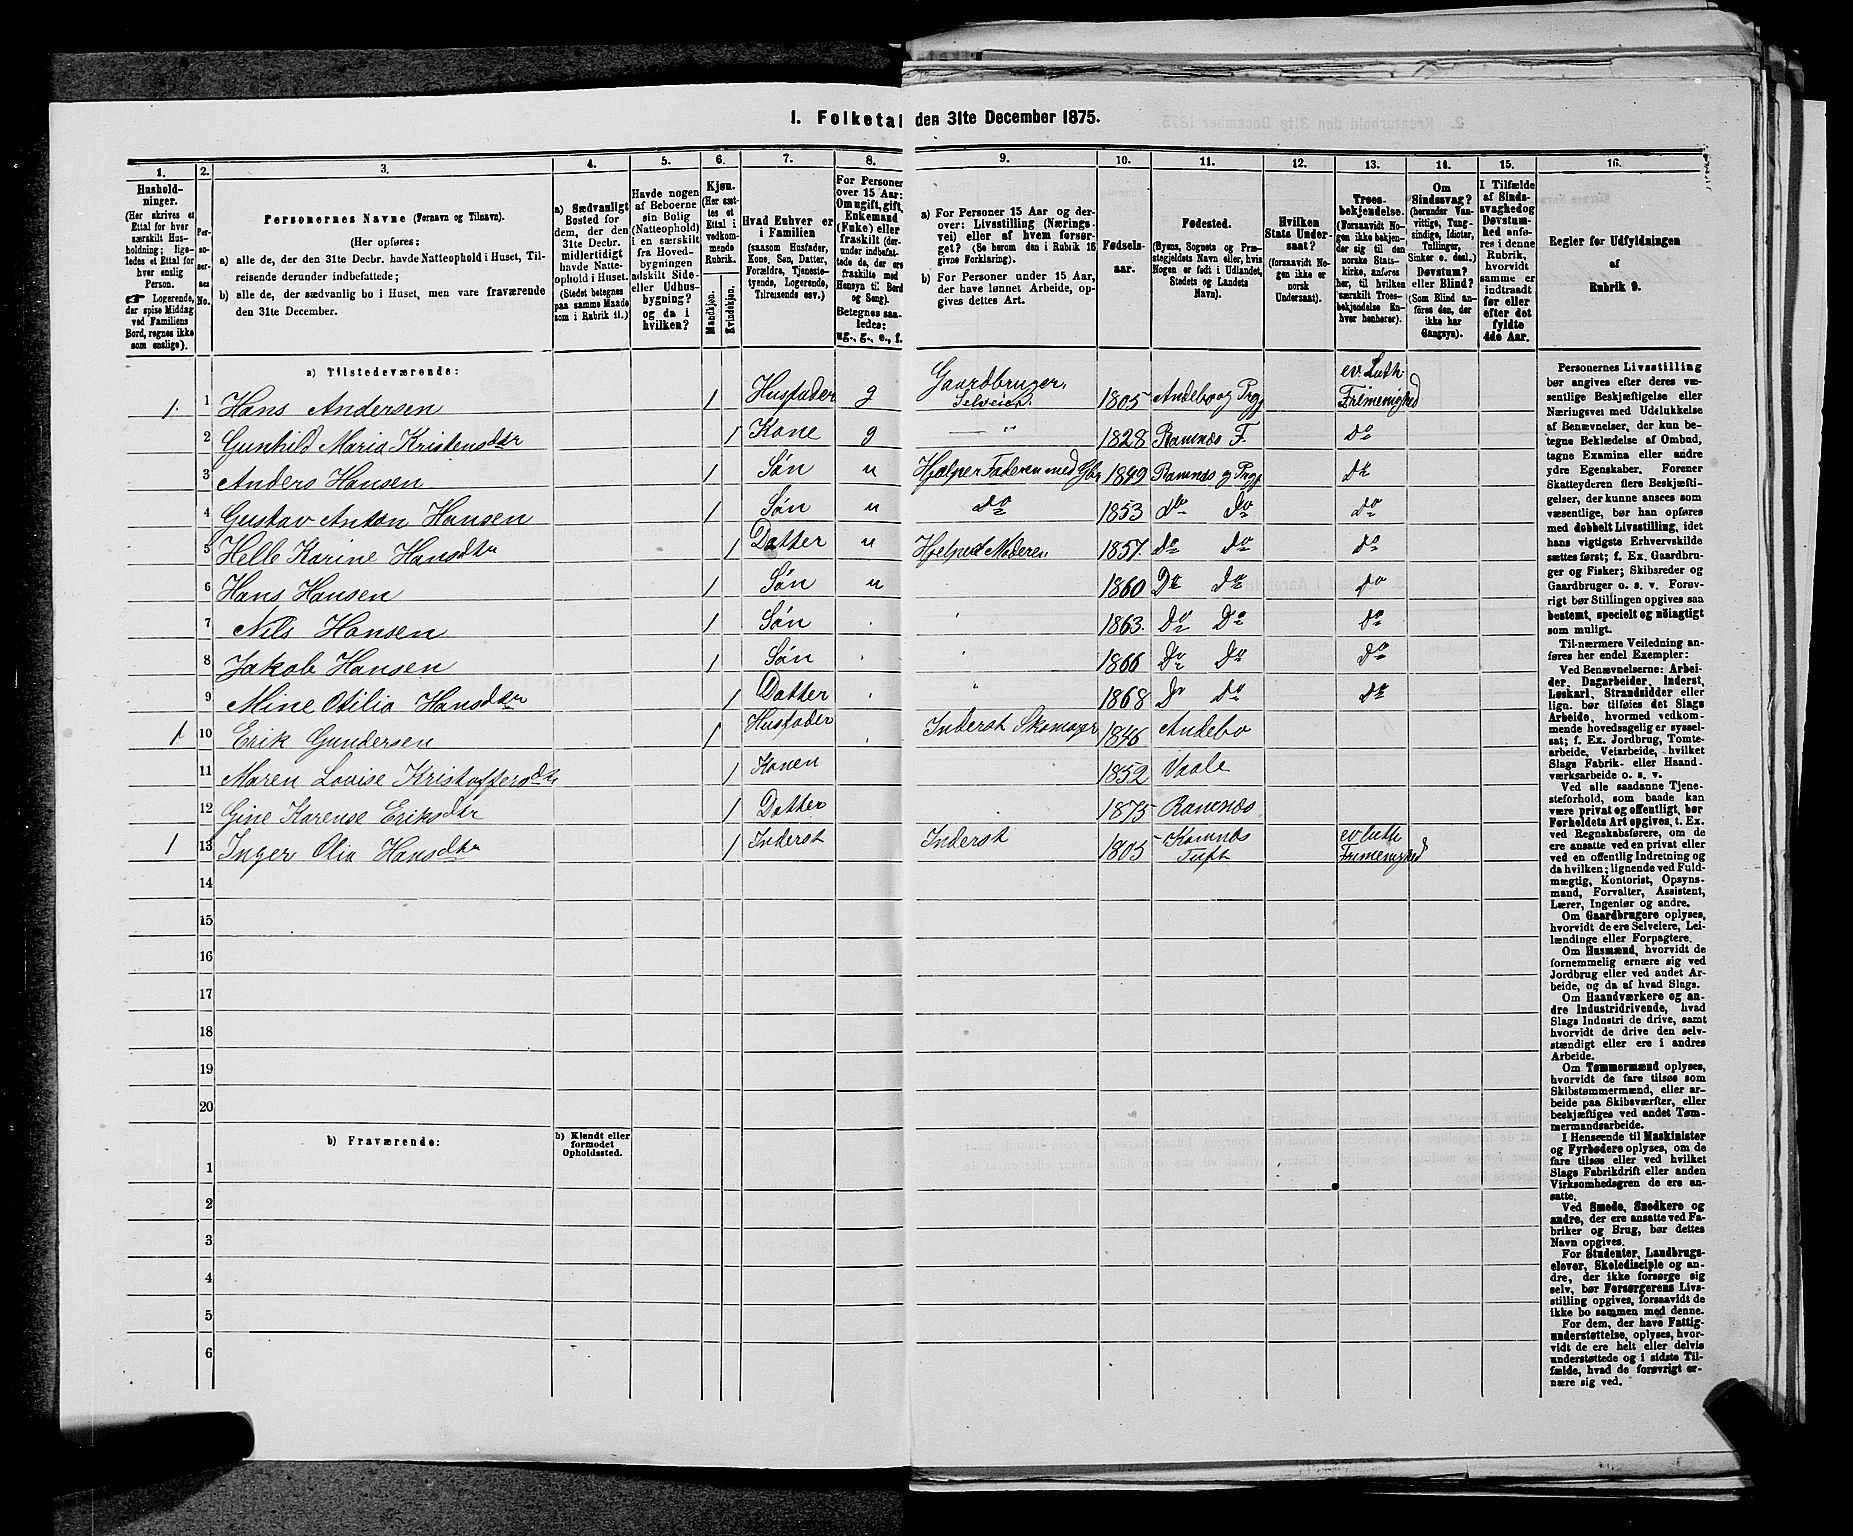 1. Folketal den 31te December 1875.
1. 2. 3. 4. 5. 6. 7. 8. 9. 10. 11. 12. 13. 14. 15. 16.
Hushold-
ninger.
(Her skrives et
Ettal for hver
særskilt Hus-
holdning; lige-
ledes et Ettal
for hver
enslig
Person.
☞ Logerende,
der spise Middag
ved Familiens
Bord, regnes ikke
som enslige).
Per-
so-
ner-
nes
No.
Personernes Navne (Fornavn og Tilnavn).
(Her opføres:
a) alle de, der den 31te Decbr. havde Natteophold i Huset, Til-
reisende derunder indbefattede;
b) alle de, der sædvanlig bo i Huset, men vare fraværende
den 31te December.
a) Sædvanligt
Bosted for
dem, der den
31te Decbr.
midlertidigt
havde Natte-
ophold i Huset.
(Stedet betegnes
paa samme Maade
som i Rubrik 11.)
Havde nogen
af Beboerne
sin Bolig
(Natteophold)
i en særskilt
fra Hoved-
bygningen
adskilt Side-
eller Udhus-
bygning?
og da i
hvilken?
Kjøn.
(Her sæt-
tes et
Ettal i
vedkom-
mende
Rubrik.
Mandkjøn.
Kvindekjøn.
Hvad Enhver er
i Familien
(saasom Husfader,
Kone, Søn, Datter,
Forældre, Tjeneste-
tyende, Logerende,
Tilreisende osv.)
For Personer
over 15 Aar:
Om ugift, gift,
Enkemand
(Enke) eller
fraskilt (der-
under indbefat-
tede de, der ere
fraskilte med
Hensyn til Bord
og Seng).
Betegnes saa-
ledes:
ug., g., e., f.
a) For Personer 15 Aar og der-
over: Livsstilling (Nærings-
vei) eller af hvem forsør-
get? (Se herom den i Rubrik 16
givne Forklaring).
b) For Personer under 15 Aar,
der have lønnet Arbeide, op-
gives dettes Art.
Fødsels-
aar.
Fødested.
(Byens, Sognets og Præ-
stegjeldets Navn eller, hvis
Nogen er født i Udlandet,
Stedets og Landets
Navn).
Hvilken
Stats Under-
saat?
(forsaavidt No-
gen ikke er
norsk
Undersaat).
Troes-
bekjendelse.
(Forsaavidt No-
gen ikke bekjen-
der sig til den
norske Stats-
kirke, anføres
her, til hvilken
særskilt Troes-
bekjendelse En-
hver henhører).
Om
Sindssvag?
(herunder Van-
vittige, Tung-
sindige, Idioter,
Tullinger,
Sinker o. desl.)
Døvstum?
eller Blind?
(Som Blind an-
føres den, der
ikke har
Gangsyn).
I Tilfælde
af Sinds-
svaghed og
Døvstum-
hed anfø-
res i denne
Rubrik,
hvorvidt
samme er
indtraadt
før eller
efter det
fyldte
4de Aar.
Regler for Udfyldningen
af
Rubrik 9.
a) Tilstedeværende:
1. 1 Hans Andersen 1 Husfader g Gaardbruger Selveier 1805 Andebo og Prgj ev. Luth: Frimenighed
2 Gunhild Maria Kristensdtr 1 Kone g — " 1828 Ramnæs F. do
3 Anders Hansen 1 Søn u Hjælper Faderen med Gbr 1849 Ramnæs og Prgj do
4 Gustav Anton Hansen 1 Søn u do 1853 do do do
5 Helle Karine Hansdtr 1 Datter u Hjelper Moderen 1857 do do do
6 Hans Hansen 1 Søn u 1860 Do do do
7 Nils Hansen 1 Søn 1863. Do Do do
8 Jakob Hansen 1 Søn 1866 Do Do do
9 Mine Otilia Hansdtr 1 Datter 1868 D do do
1 10 Erik Gundersen 1 Husfader Inderst Skomager 1846 Andebo
11 Maren Lovise Kristoffersdtr 1 Konen 1852 Vaale
12 Gine Karense Eriksdtr 1 Datter 1875 Ramnæs
1 13 Inger Olia Hansdtr 1 Inderst Inderst 1805 Ramnæs Tuft ev luth Frimenighed
14
15
16
17
18
19
20
b) Fraværende:
b) Kjendt eller
formodet
Opholdssted.
1
2
3
4
5
6
Personernes Livsstilling
bør angives efter deres væ-
sentlige Beskjæftigelse eller
Næringsvei med Udelukkelse
af Benævnelser, der kun be-
tegne Beklædelse af Ombud,
tagne Examina eller andre
ydre Egenskaber. Forener
Skatteyderen flere Beskjæfti-
gelser, der kunne ansees som
væsentlige, bør han opføres
med dobbelt Livsstilling, idet
hans vigtigste Erhvervskilde
sættes først; f. Ex. Gaardbru-
ger og Fisker; Skibsreder og
Gaardbruger o. s. v. Forøv-
rigt bør Stillingen opgives saa
bestemt, specielt og nøiagtigt
som muligt.
Til nærmere Veiledning an-
føres her endel Exempler:
Ved Benævnelserne: Arbei-
der, Dagarbeider, Inderst,
Løskarl, Strandsidder eller
lign. bør tilføies det Slags
Arbeide, hvormed vedkom-
mende hovedsagelig er syssel-
sat; f. Ex. Jordbrug, Tomte-
arbeide, Veiarbeide, hvilket
Slags Fabrik- eller Haand-
værksarbeide o. s. v.
Ved alle saadanne Tjene-
steforhold, som baade kan
være privat og offentligt, bør
Forholdets Art opgives, f. Ex.
ved Regnskabsførere, om de
ere ansatte ved en privat eller
ved en offentlig Indretning og
da hvilken; lignende ved Fuld-
mægtig, Kontorist, Opsyns-
mand, Forvalter, Assistent,
Lærer, Ingeniør og andre.
Om Gaardbrugere oplyses,
hvorvidt de ere Selveiere, Lei-
lændinge eller Forpagtere.
Om Husmænd, hvorvidt de
fornemmelig ernære sig ved
Jordbrug eller ved andet Ar-
beide, og da af hvad Slags.
Om Haandværkere og an-
dre Industridrivende, hvad
Slags Industri de drive, samt
hvorvidt de drive den selv-
stændigt eller ere i andres
Arbeide.
Om Tømmermænd oplyses,
hvorvidt de fare tilsøs som
Skibstømmermænd, eller ar-
beide paa Skibsværfter, eller
beskjæftiges ved andet Tøm-
mermandsarbeide.
I Henseende til Maskinister
og Fyrbødere oplyses, om de
fare tilsøs eller ved hvilket
Slags Fabrikdrift eller anden
Virksomhedsgren de ere an-
satte.
Ved Smede, Snedkere og
andre, der ere ansatte ved Fa-
briker og Brug, bør dettes
Navn opgives.
For Studenter, Landbrugs-
elever, Skoledisciple og an-
dre, der ikke forsørge sig
selv, bør Forsørgerens Livs-
stilling opgives, forsaavidt de
ikke bo sammen med denne.
For dem, der have Fattig-
understøttelse, oplyses, hvor-
vidt de ere helt eller delvis
understøttede og i sidste Til-
fælde, hvad de forøvrigt er-
nære sig ved.